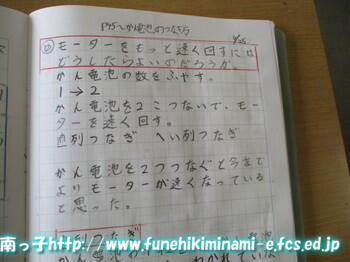 かん電池のつなぎ方
モーターをもっと速く回すには
どうしたらよいのだろうか。
かん電池の数をふやす。
1→2
かん電池を2こつないで、モー
ターを速く回す。
直列つなぎ　へい列つなぎ
かん電池を2つつなぐと今まで
よりモーターが速くなっている
と思った。
列つなぎ
かん電池
南っ子http://www.funehikiminami-e.fcs.ed.jp